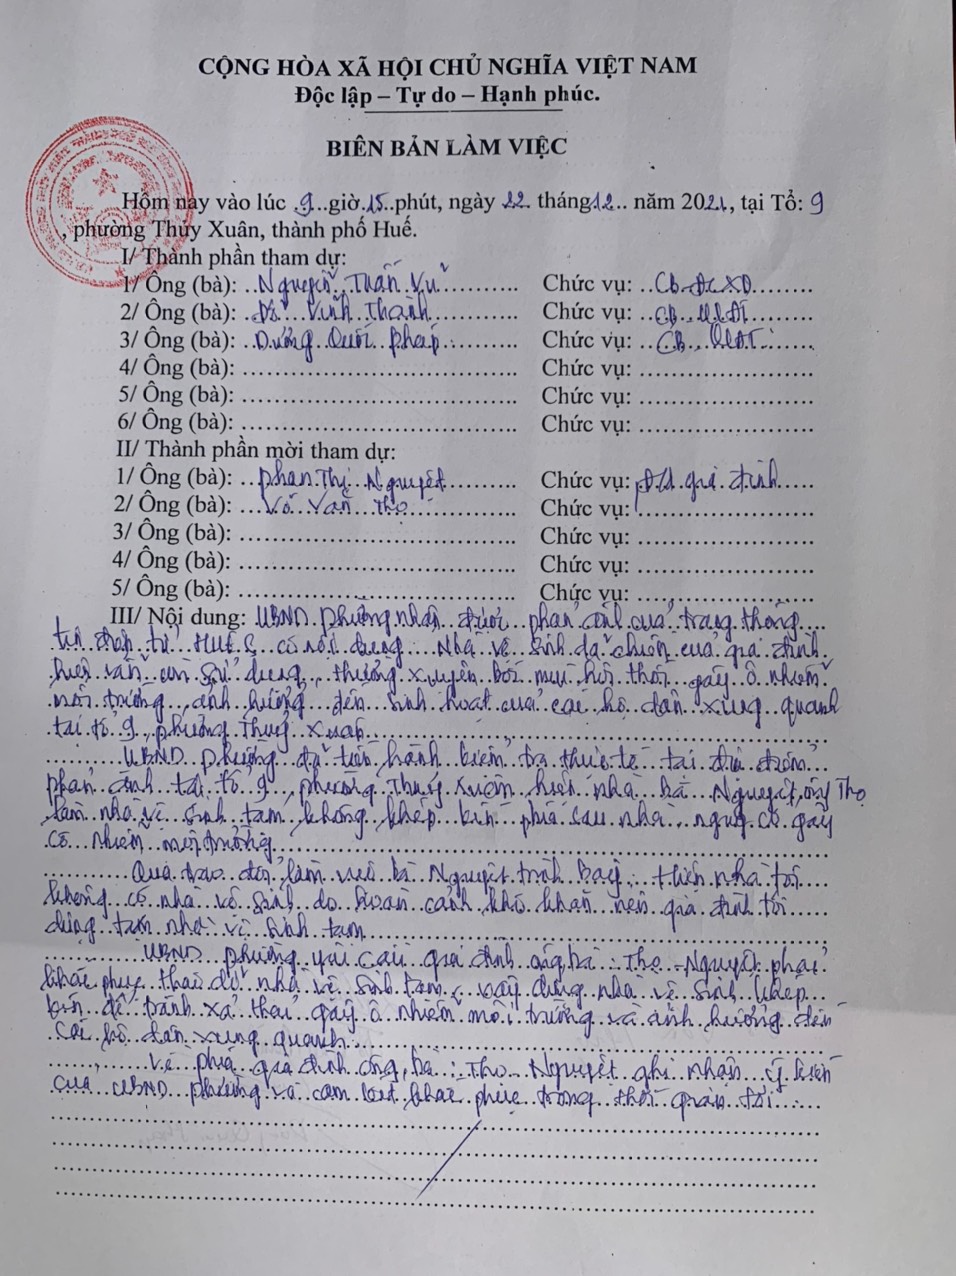 CỘNG HÒA XÃ HỘI CHỦ NGHĨA VIỆT NAM
Độc lập – Tự do – Hạnh phúc.
BIÊN BẢN LÀM VIỆC
Hôm nay vào lúc 9 giờ 15 phút, ngày 22 tháng 12 năm 2021, tại Tổ: 9
, phường Thủy Xuân, thành phố Huế.
I/ Thành phần tham dự:
1/ Ông (bà): Nguyễn Tuấn Vũ Chức vụ: CB ĐCXD
2/ Ông (bà): Vĩnh Thành Chức vụ: CB QLĐT
3/ Ông (bà): Dương Quốc Pháp Chức vụ: CB QLĐT
4/ Ông (bà): Chức vụ:
5/ Ông (bà): Chức vụ:
6/ Ông (bà): Chức vụ:
II/ Thành phần mời tham dự:
1/ Ông (bà): Phan Thị Nguyệt Chức vụ: Đd gia đình
2/ Ông (bà): Võ Văn Thọ Chức vụ:
3/ Ông (bà): Chức vụ:
4/ Ông (bà): Chức vụ:
5/ Ông (bà): Chức vụ:
III/ Nội dung: UBND phường nhận được phản ánh của trang thông
tin điện tử Huế S có nội dung: Nhà vệ sinh dã chiến của gia đình
hiện vẫn còn sử dụng, thường xuyên bốc mùi hôi thối gây ô nhiễm
môi trường, ảnh hưởng đến sinh hoạt của các hộ dân xung quanh
tại tổ 9, phường Thủy Xuân.
UBND phường đã tiến hành kiểm tra thực tế tại địa điểm
phản ánh tại tổ 9, phường Thủy Xuân hiện nhà bà Nguyệt, ông Thọ
làm nhà vệ sinh tạm không khép kín phía sau nhà nguy cơ gây
ô nhiễm môi trường.
Qua trao đổi làm việc bà Nguyệt trình bày: Hiện nhà tôi
không có nhà vệ sinh do hoàn cảnh khó khăn nên gia đình tôi
dùng tạm nhà vệ sinh tạm
UBND phường yêu cầu gia đình ông bà: Thọ - Nguyệt phải
khắc phục tháo dỡ nhà vệ sinh tạm, xây dựng nhà vệ sinh khép
kín để tránh xả thải gây ô nhiễm môi trường và ảnh hưởng đến
các hộ dân xung quanh.
Về phía gia đình ông bà: Thọ - Nguyệt ghi nhận ý kiến
của UBND phường và cam kết khắc phục trong thời gian tới.